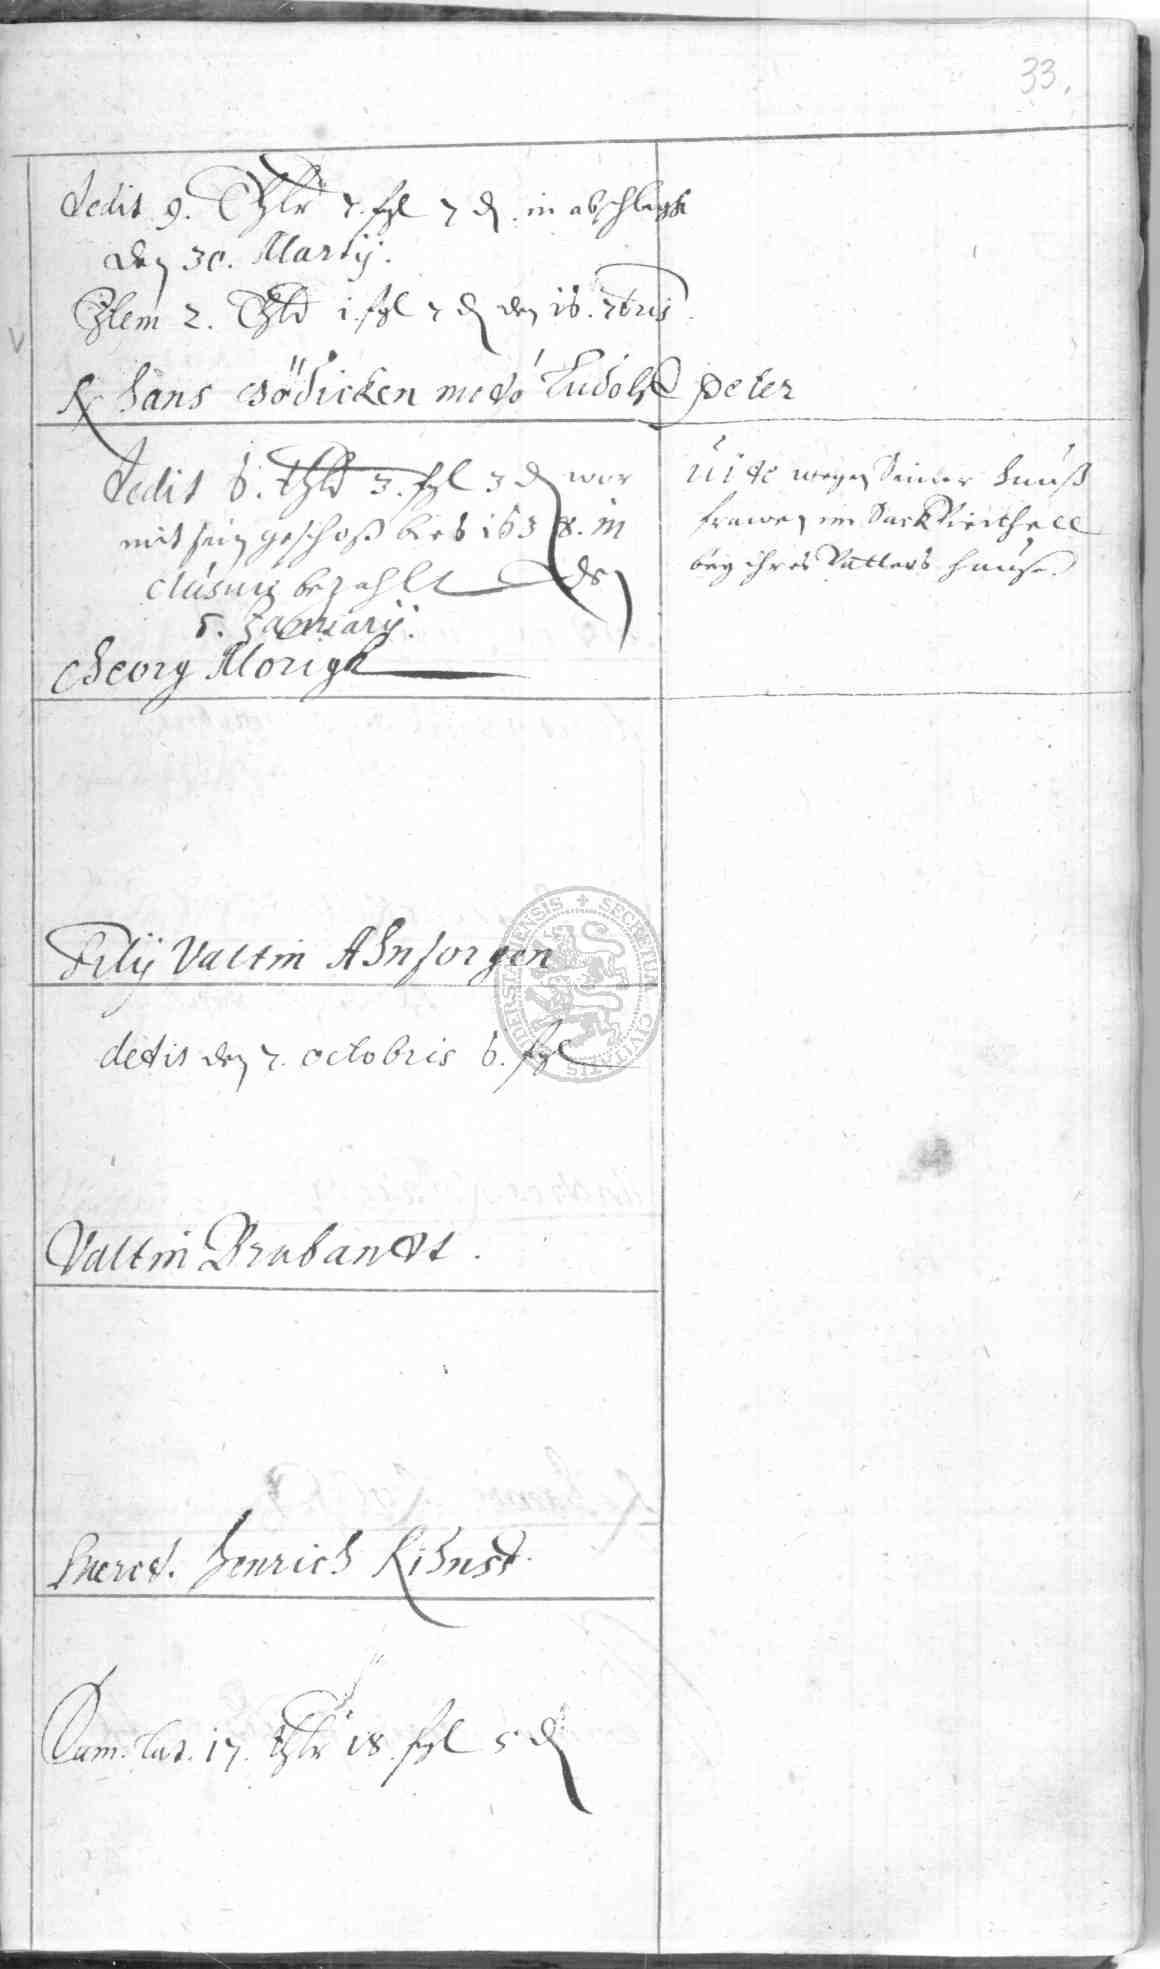 33.
dedit 9. Thlr 7. ßgl 7 d. in abschlagk
den 30. Martij.
Item 2. Thlr 1 ßgl 7 d den 16. 7bris
Hans Gödicken modo Ludolff Peter
dedit 6. Thlr 3. ßgl 3 d wor
mit sein geschoß bies 1638. in
clusive bezahlt den
5. Januarij.
Vide wegen Seiner hauß
frawen im Sack Vierthell
bey ihres Vatters hause.
Georg Morigk
Filij Valtin Ahnsorgen
dedit den 7. octobris 6. ßgl
Valtin Brabandt.
Haered. Henrich Kihnst.
Sum. Lat. 17. Thlr 18 ßgl 5 d
SECRETUM CIVITATIS